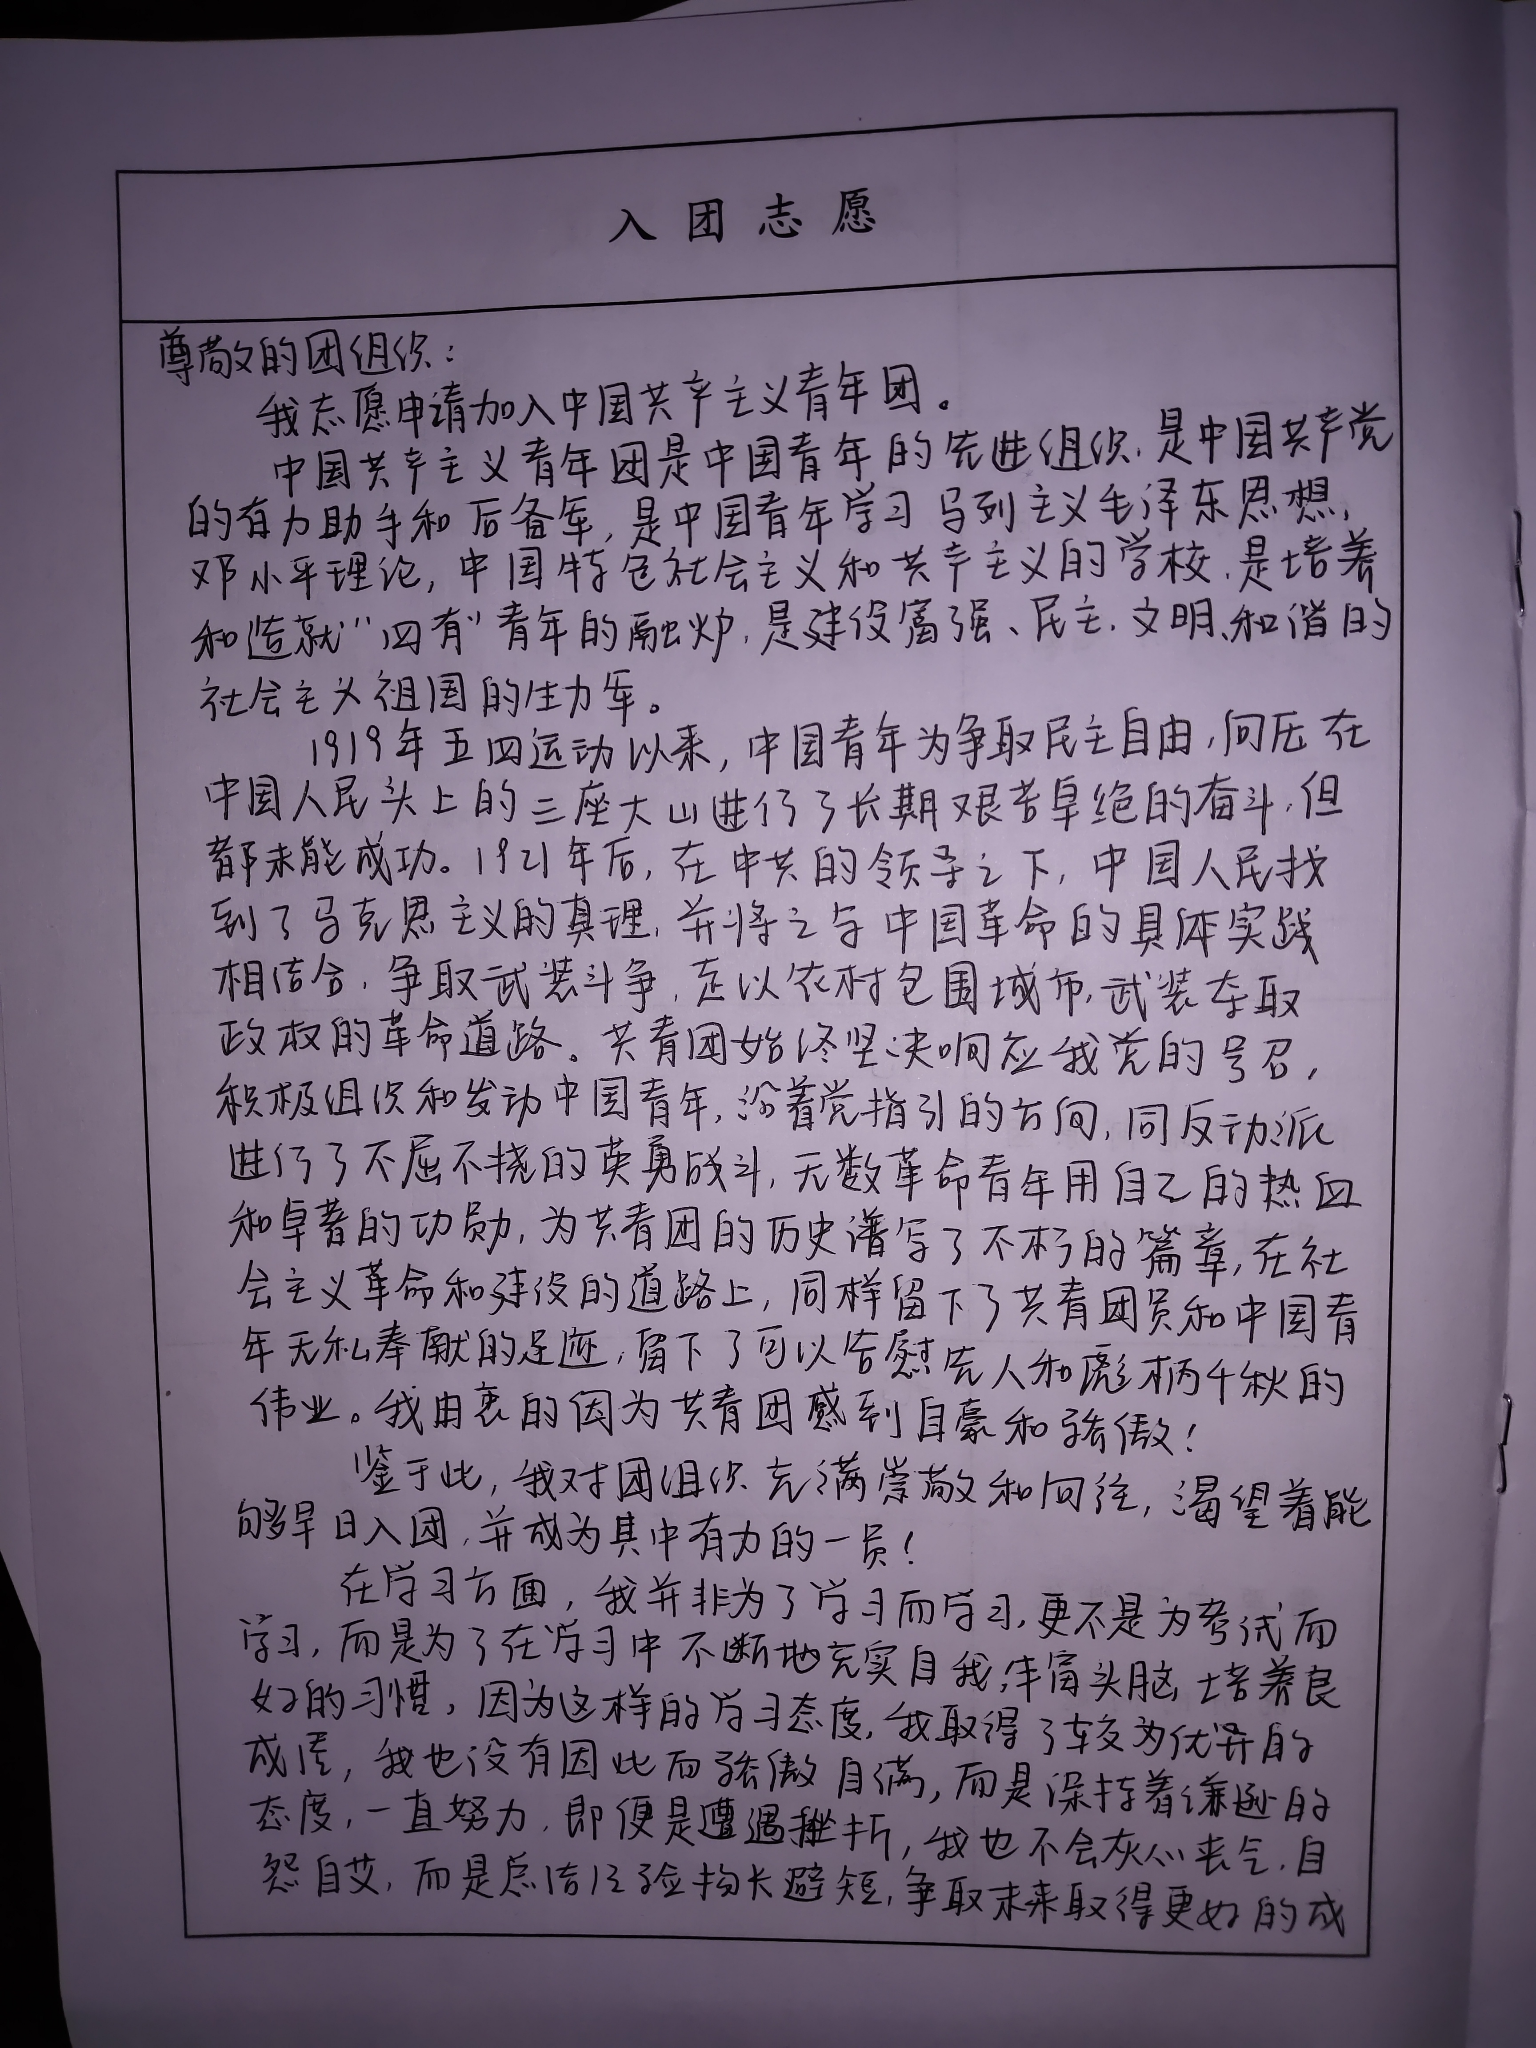 入团志愿
尊敬的团组织：
我志愿申请加入中国共产主义青年团。
中国共产主义青年团是中国青年的先进组织，是中国共产党
的有力助手和后备军，是中国青年学习马列主义毛泽东思想，
邓小平理论，中国特色社会主义和共产主义的学校，是培养
和造就“四有”青年的融炉，是建设富强、民主、文明、和谐的
社会主义祖国的生力军。
1919年五四运动以来，中国青年为争取民主自由，向压在
中国人民头上的三座大山进行了长期艰苦卓绝的奋斗，但
都未能成功。1921年后，在中共的领导之下，中国人民找
到了马克思主义的真理，并将之与中国革命的具体实践
相结合，争取武装斗争，走以农村包围城市，武装夺取
政权的革命道路。共青团始终坚决响应我党的号召，
积极组织和发动中国青年，沿着党指引的方向，同反动派
进行了不屈不挠的英勇战斗，无数革命青年用自己的热血
和卓著的功勋，为共青团的历史谱写了不朽的篇章，在社
会主义革命和建设的道路上，同样留下了共青团员和中国青
年无私奉献的足迹，留下了可以告慰先人和彪柄千秋的
伟业。我由衷的因为共青团感到自豪和骄傲！
鉴于此，我对团组织充满崇敬和向往，渴望着能
够早日入团，并成为其中有力的一员！
在学习方面，我并非为了学习而学习，更不是为考试而
学习，而是为了在学习中不断地充实自我，丰富头脑，培养良
好的习惯，因为这样的学习态度，我取得了较为优异的
成绩，我也没有因此而骄傲自满，而是保持着谦逊的
态度，一直努力，即便是遭遇挫折，我也不会灰心丧气，自
怨自艾，而是总结经验扬长避短，争取未来取得更好的成